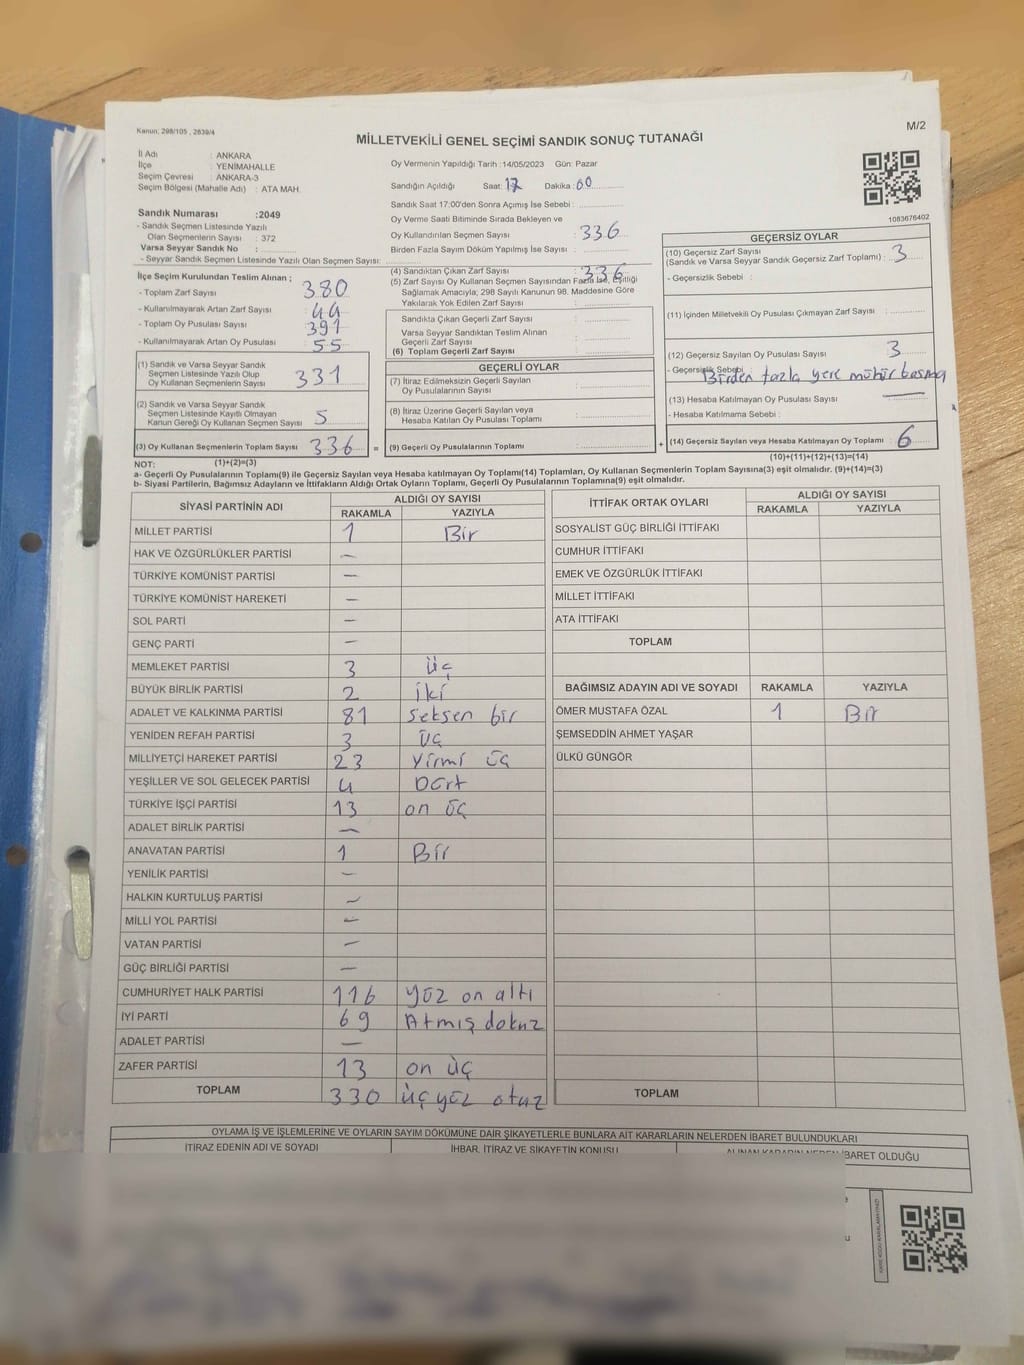 Kanun: 298/105 , 2839/4
M/2
MİLLETVEKİLİ GENEL SEÇİMİ SANDIK SONUÇ TUTANAĞI
İl Adı : ANKARA
İlçe : YENİMAHALLE
Seçim Çevresi : ANKARA-3
Seçim Bölgesi (Mahalle Adı) : ATA MAH.
Oy Vermenin Yapıldığı Tarih :14/05/2023 Gün: Pazar
Sandığın Açıldığı Saat: 17 Dakika: 00
Sandık Saat 17:00'den Sonra Açımış İse Sebebi :
Oy Verme Saati Bitiminde Sırada Bekleyen ve
Oy Kullandırılan Seçmen Sayısı : 336
Birden Fazla Sayım Döküm Yapılmış İse Sayısı :
1083676402
Sandık Numarası :2049
- Sandık Seçmen Listesinde Yazılı
Olan Seçmenlerin Sayısı : 372
Varsa Seyyar Sandık No :
- Seyyar Sandık Seçmen Listesinde Yazılı Olan Seçmen Sayısı:
İlçe Seçim Kurulundan Teslim Alınan ;
- Toplam Zarf Sayısı 380
- Kullanılmayarak Artan Zarf Sayısı : 44
- Toplam Oy Pusulası Sayısı : 391
- Kullanılmayarak Artan Oy Pusulası : 55
(1) Sandık ve Varsa Seyyar Sandık
Seçmen Listesinde Yazılı Olup
Oy Kullanan Seçmenlerin Sayısı : 331
(2) Sandık ve Varsa Seyyar Sandık
Seçmen Listesinde Kayıtlı Olmayan
Kanun Gereği Oy Kullanan Seçmen Sayısı : 5
(3) Oy Kullanan Seçmenlerin Toplam Sayısı : 336 =
(1)+(2)=(3)
(4) Sandıktan Çıkan Zarf Sayısı : 336
(5) Zarf Sayısı Oy Kullanan Seçmen Sayısından Fazla İse, Eşitliği
Sağlamak Amacıyla; 298 Sayılı Kanunun 98. Maddesine Göre
Yakılarak Yok Edilen Zarf Sayısı :
Sandıkta Çıkan Geçerli Zarf Sayısı :
Varsa Seyyar Sandıktan Teslim Alınan
Geçerli Zarf Sayısı :
(6) Toplam Geçerli Zarf Sayısı :
GEÇERLİ OYLAR
(7) İtiraz Edilmeksizin Geçerli Sayılan
Oy Pusulasının Sayısı :
(8) İtiraz Üzerine Geçerli Sayılan veya
Hesaba Katılan Oy Pusulası Toplamı :
(9) Geçerli Oy Pusulalarının Toplamı : +
GEÇERSİZ OYLAR
(10) Geçersiz Zarf Sayısı
(Sandık ve Varsa Seyyar Sandık Geçersiz Zarf Toplamı) : 3
- Geçersizlik Sebebi :
(11) İçinden Milletvekili Oy Pusulası Çıkmayan Zarf Sayısı :
(12) Geçersiz Sayılan Oy Pusulası Sayısı : 3
- Geçersizlik Sebebi :
Birden fazla yere mühür basma
(13) Hesaba Katılmayan Oy Pusulası Sayısı : —
- Hesaba Katılmama Sebebi :
(14) Geçersiz Sayılan veya Hesaba Katılmayan Oy Toplamı : 6
(10)+(11)+(12)+(13)=(14)
NOT:
a- Geçerli Oy Pusulalarının Toplamı(9) ile Geçersiz Sayılan veya Hesaba katılmayan Oy Toplamı(14) Toplamları, Oy Kullanan Seçmenlerin Toplam Sayısına(3) eşit olmalıdır. (9)+(14)=(3)
b- Siyasi Partilerin, Bağımsız Adayların ve İttifakların Aldığı Ortak Oyların Toplamı, Geçerli Oy Pusulalarının Toplamına(9) eşit olmalıdır.
SİYASİ PARTİNİN ADI ALDIĞI OY SAYISI
RAKAMLA YAZIYLA
MİLLET PARTİSİ 1 Bir
HAK VE ÖZGÜRLÜKLER PARTİSİ —
TÜRKİYE KOMÜNİST PARTİSİ —
TÜRKİYE KOMÜNİST HAREKETİ —
SOL PARTİ —
GENÇ PARTİ —
MEMLEKET PARTİSİ 3 üç
BÜYÜK BİRLİK PARTİSİ 2 iki
ADALET VE KALKINMA PARTİSİ 81 seksen bir
YENİDEN REFAH PARTİSİ 3 üç
MİLLİYETÇİ HAREKET PARTİSİ 23 Yirmi üç
YEŞİLLER VE SOL GELECEK PARTİSİ 4 Dört
TÜRKİYE İŞÇİ PARTİSİ 13 on üç
ADALET BİRLİK PARTİSİ —
ANAVATAN PARTİSİ 1 Bir
YENİLİK PARTİSİ —
HALKIN KURTULUŞ PARTİSİ —
MİLLİ YOL PARTİSİ —
VATAN PARTİSİ —
GÜÇ BİRLİĞİ PARTİSİ —
CUMHURİYET HALK PARTİSİ 116 yüz on altı
İYİ PARTİ 69 Atmış dokuz
ADALET PARTİSİ —
ZAFER PARTİSİ 13 on üç
TOPLAM 330 üç yüz otuz
İTTİFAK ORTAK OYLARI ALDIĞI OY SAYISI
RAKAMLA YAZIYLA
SOSYALİST GÜÇ BİRLİĞİ İTTİFAKI
CUMHUR İTTİFAKI
EMEK VE ÖZGÜRLÜK İTTİFAKI
MİLLET İTTİFAKI
ATA İTTİFAKI
TOPLAM
BAĞIMSIZ ADAYIN ADI VE SOYADI RAKAMLA YAZIYLA
ÖMER MUSTAFA ÖZAL 1 Bir
ŞEMSEDDİN AHMET YAŞAR
ÜLKÜ GÜNGÖR
TOPLAM
OYLAMA İŞ VE İŞLEMLERİNE VE OYLARIN SAYIM DÖKÜMÜNE DAİR ŞİKAYETLERLE BUNLARA AİT KARARLARIN NELERDEN İBARET BULUNDUKLARI
İTİRAZ EDENİN ADI VE SOYADI İHBAR, İTİRAZ VE ŞİKAYETİN KONUSU ALINAN KARARIN NEDEN İBARET OLDUĞU